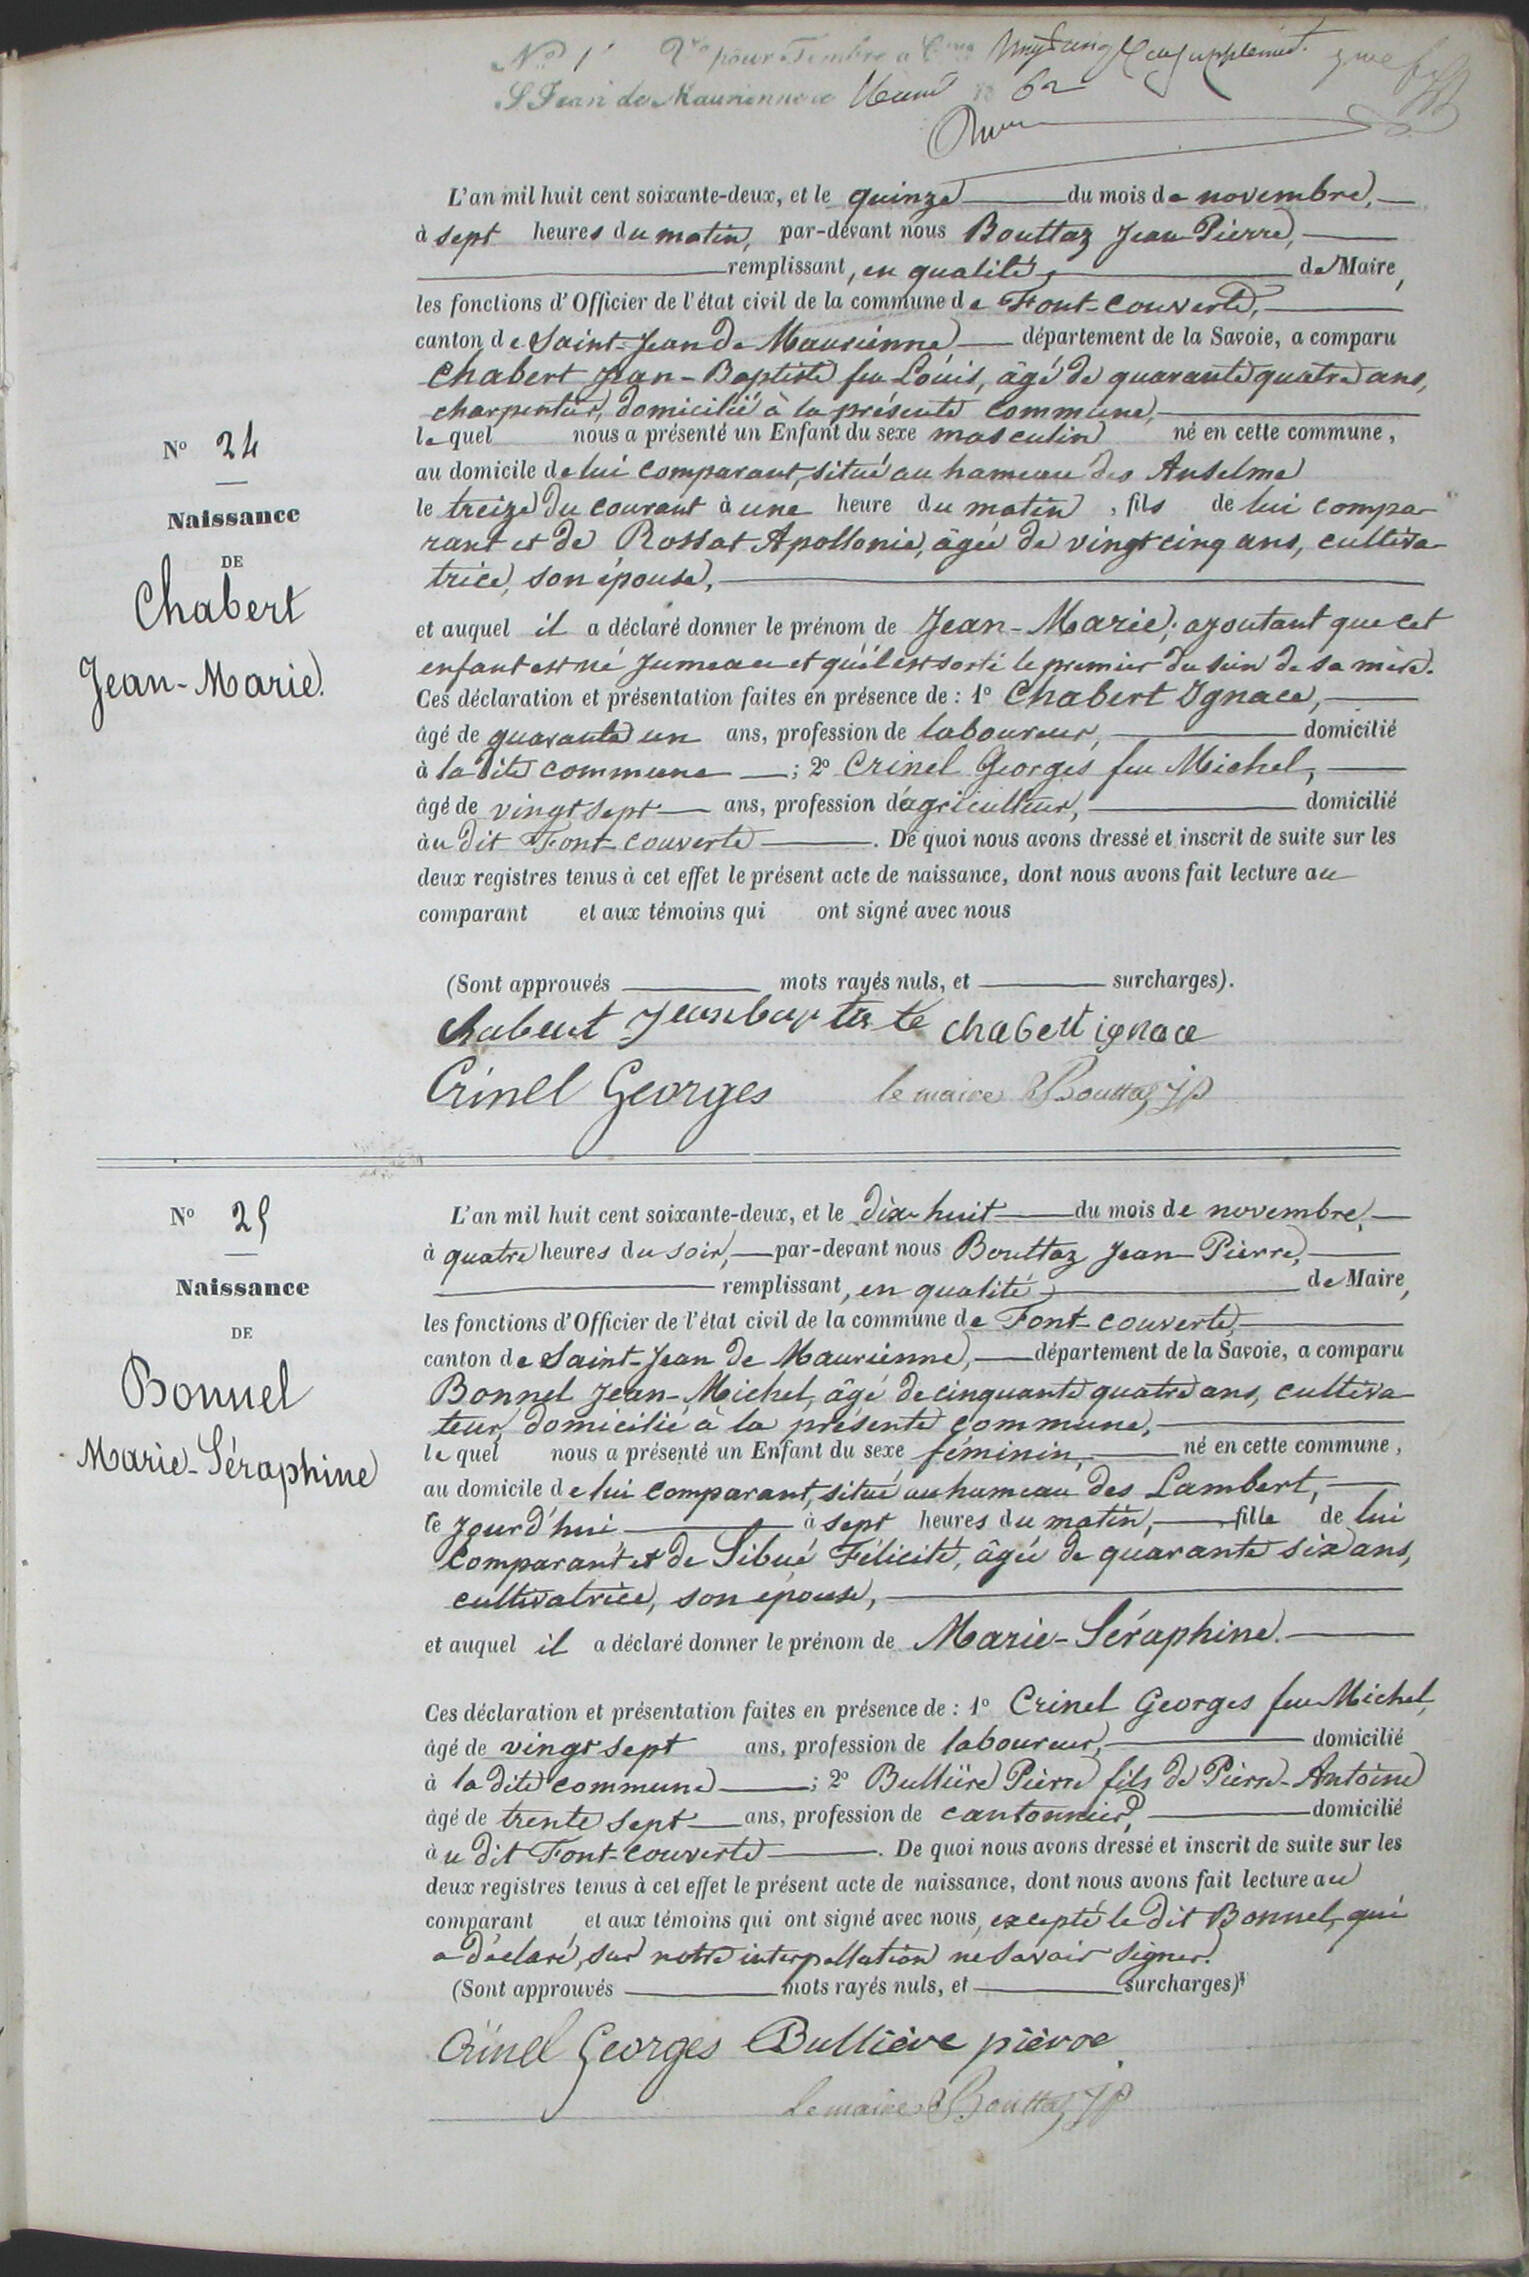 N° 1 Vu pour Timbre à
St Jean de Maurienne le 62
L'an mil huit cent soixante-deux, et le quinze du mois de novembre,
à sept heures du matin, par-devant nous Bouttaz Jean Pierre,
remplissant, en qualité, de Maire,
les fonctions d'Officier de l'état civil de la commune de Font-couverte,
canton de Saint-Jean de Maurienne département de la Savoie, a comparu
Chabert Jean-Baptiste feu Louis, âgé de quarante quatre ans,
charpentier, domicilié à la présente commune,
le quel nous a présenté un Enfant du sexe masculin né en cette commune,
au domicile de lui comparant, situé au hameau des Anselme
le treize du courant à une heure du matin, fils de lui compa-
rant et de Rossat Apollonie, âgée de vingt cinq ans, cultiva-
trice, son épouse,
et auquel il a déclaré donner le prénom de Jean-Marie; ajoutant que cet
enfant est né Jumeau et qu'il est sorti le premier du sein de sa mère.
Ces déclaration et présentation faites en présence de : 1° Chabert Ignace,
âgé de quarante un ans, profession de laboureur, domicilié
à la dite commune ; 2° Crinel Georges feu Michel,
âgé de vingt sept ans, profession d'agriculteur, domicilié
àu dit Font-couverte. De quoi nous avons dressé et inscrit de suite sur les
deux registres tenus à cet effet le présent acte de naissance, dont nous avons fait lecture au
comparant et aux témoins qui ont signé avec nous
(Sont approuvés mots rayés nuls, et surcharges).
Chabert Jean baptiste chabert ignace
Crinel Georges le maire Bouttaz jp
N° 24
Naissance
DE
Chabert
Jean-Marie.
N° 25
Naissance
DE
Bonnel
Marie-Séraphine
L'an mil huit cent soixante-deux, et le dix huit du mois de novembre,
à quatre heures du soir, par-devant nous Bouttaz Jean Pierre,
remplissant, en qualité de Maire,
les fonctions d'Officier de l'état civil de la commune de Font-couverte,
canton de Saint-Jean de Maurienne, département de la Savoie, a comparu
Bonnel Jean-Michel, âgé de cinquante quatre ans, cultiva-
teur, domicilié à la présente commune,
le quel nous a présenté un Enfant du sexe féminin, né en cette commune,
au domicile de lui comparant, situé au hameau des Lambert,
le jourd'hui à sept heures du matin, fille de lui
comparant et de Sibué Félicité, âgée de quarante six ans,
cultivatrice, son épouse,
et auquel il a déclaré donner le prénom de Marie-Séraphine.
Ces déclaration et présentation faites en présence de : 1° Crinel Georges feu Michel,
âgé de vingt sept ans, profession de laboureur, domicilié
à la dite commune ; 2° Bullière Pierre fils de Pierre-Antoine
âgé de trente sept ans, profession de cantonnier, domicilié
àu dit Font-couverte. De quoi nous avons dressé et inscrit de suite sur les
deux registres tenus à cet effet le présent acte de naissance, dont nous avons fait lecture au
comparant et aux témoins qui ont signé avec nous, excepté le dit Bonnel, qui
a déclaré, sur notre interpellation ne savoir signer.
(Sont approuvés mots rayés nuls, et surcharges).
Crinel Georges Bullière pièrre
le maire Bouttaz jp